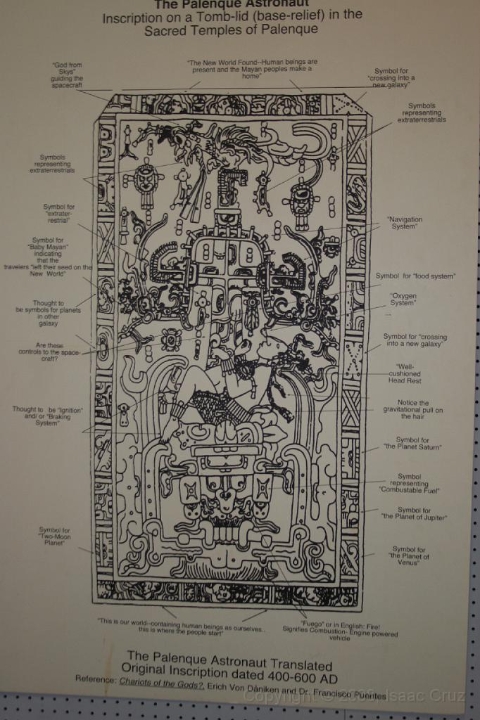 The Palenque Astronaut
Inscription on a Tomb-lid (base-relief) in the
Sacred Temples of Palenque
"God from
Skys"
guiding the
spacecraft
"The New World Found--Human beings are
present and the Mayan peoples make a
home"
Symbol for
"crossing into a
new galaxy"
Symbols
representing
extraterrestrials
Symbols
representing
extraterrestrials
Symbol for
"extrater-
restrial"
Symbol for
"Baby Mayan"
indicating
that the
travelers "left their seed on the
New World"
Thought to
be symbols for planets
in other
galaxy
Are these
controls to the space-
craft?
Thought to be "Ignition"
and/or "Braking
System"
Symbol for
"Two-Moon
Planet"
"Navigation
System"
Symbol for "food system"
"Oxygen
System"
Symbol for "crossing
into a new galaxy"
"Well-
cushioned
Head Rest
Notice the
gravitational pull on
the hair
Symbol for
"the Planet Saturn"
Symbol
representing
"Combustable Fuel"
Symbol for
"the Planet of Jupiter"
Symbol for
"the Planet of
Venus"
"This is our world--containing human beings as ourselves...
this is where the people start"
"Fuego" or in English: Fire!
Signifies Combustion- Engine powered
vehicle
The Palenque Astronaut Translated
Original Inscription dated 400-600 AD
Reference: Chariots of the Gods?, Erich Von Däniken and Dr. Francisco Puentes
Copyright Isaac Cruz